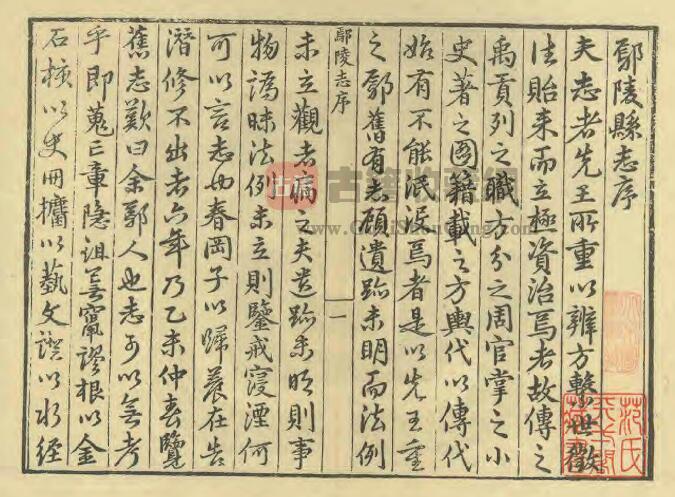 鄢陵縣志序
夫志者先王所重以辨方繫世徵
往貽来而立極資治焉者故傳之
禹貢列之職方分之周官掌之小
史著之圖籍載之方輿代以傳代
始有不能泯泯焉者是以先王重
之鄢舊有志顧遺跡未明而法例
鄢陵志序
一
未立觀者病之夫遺跡未明則事
物譌昧法例未立則鑒戒寖湮何
可以言志也春岡子以歸養在告
潛修不出者六年乃乙未仲春覽
舊志歎曰余鄢人也志可以無考
乎即蒐三章隐诅甚竄謬根以金
石核以史冊攟以藝文误以水经
古籍
www.GuJiShouCang.com
范氏
天一閣
藏書